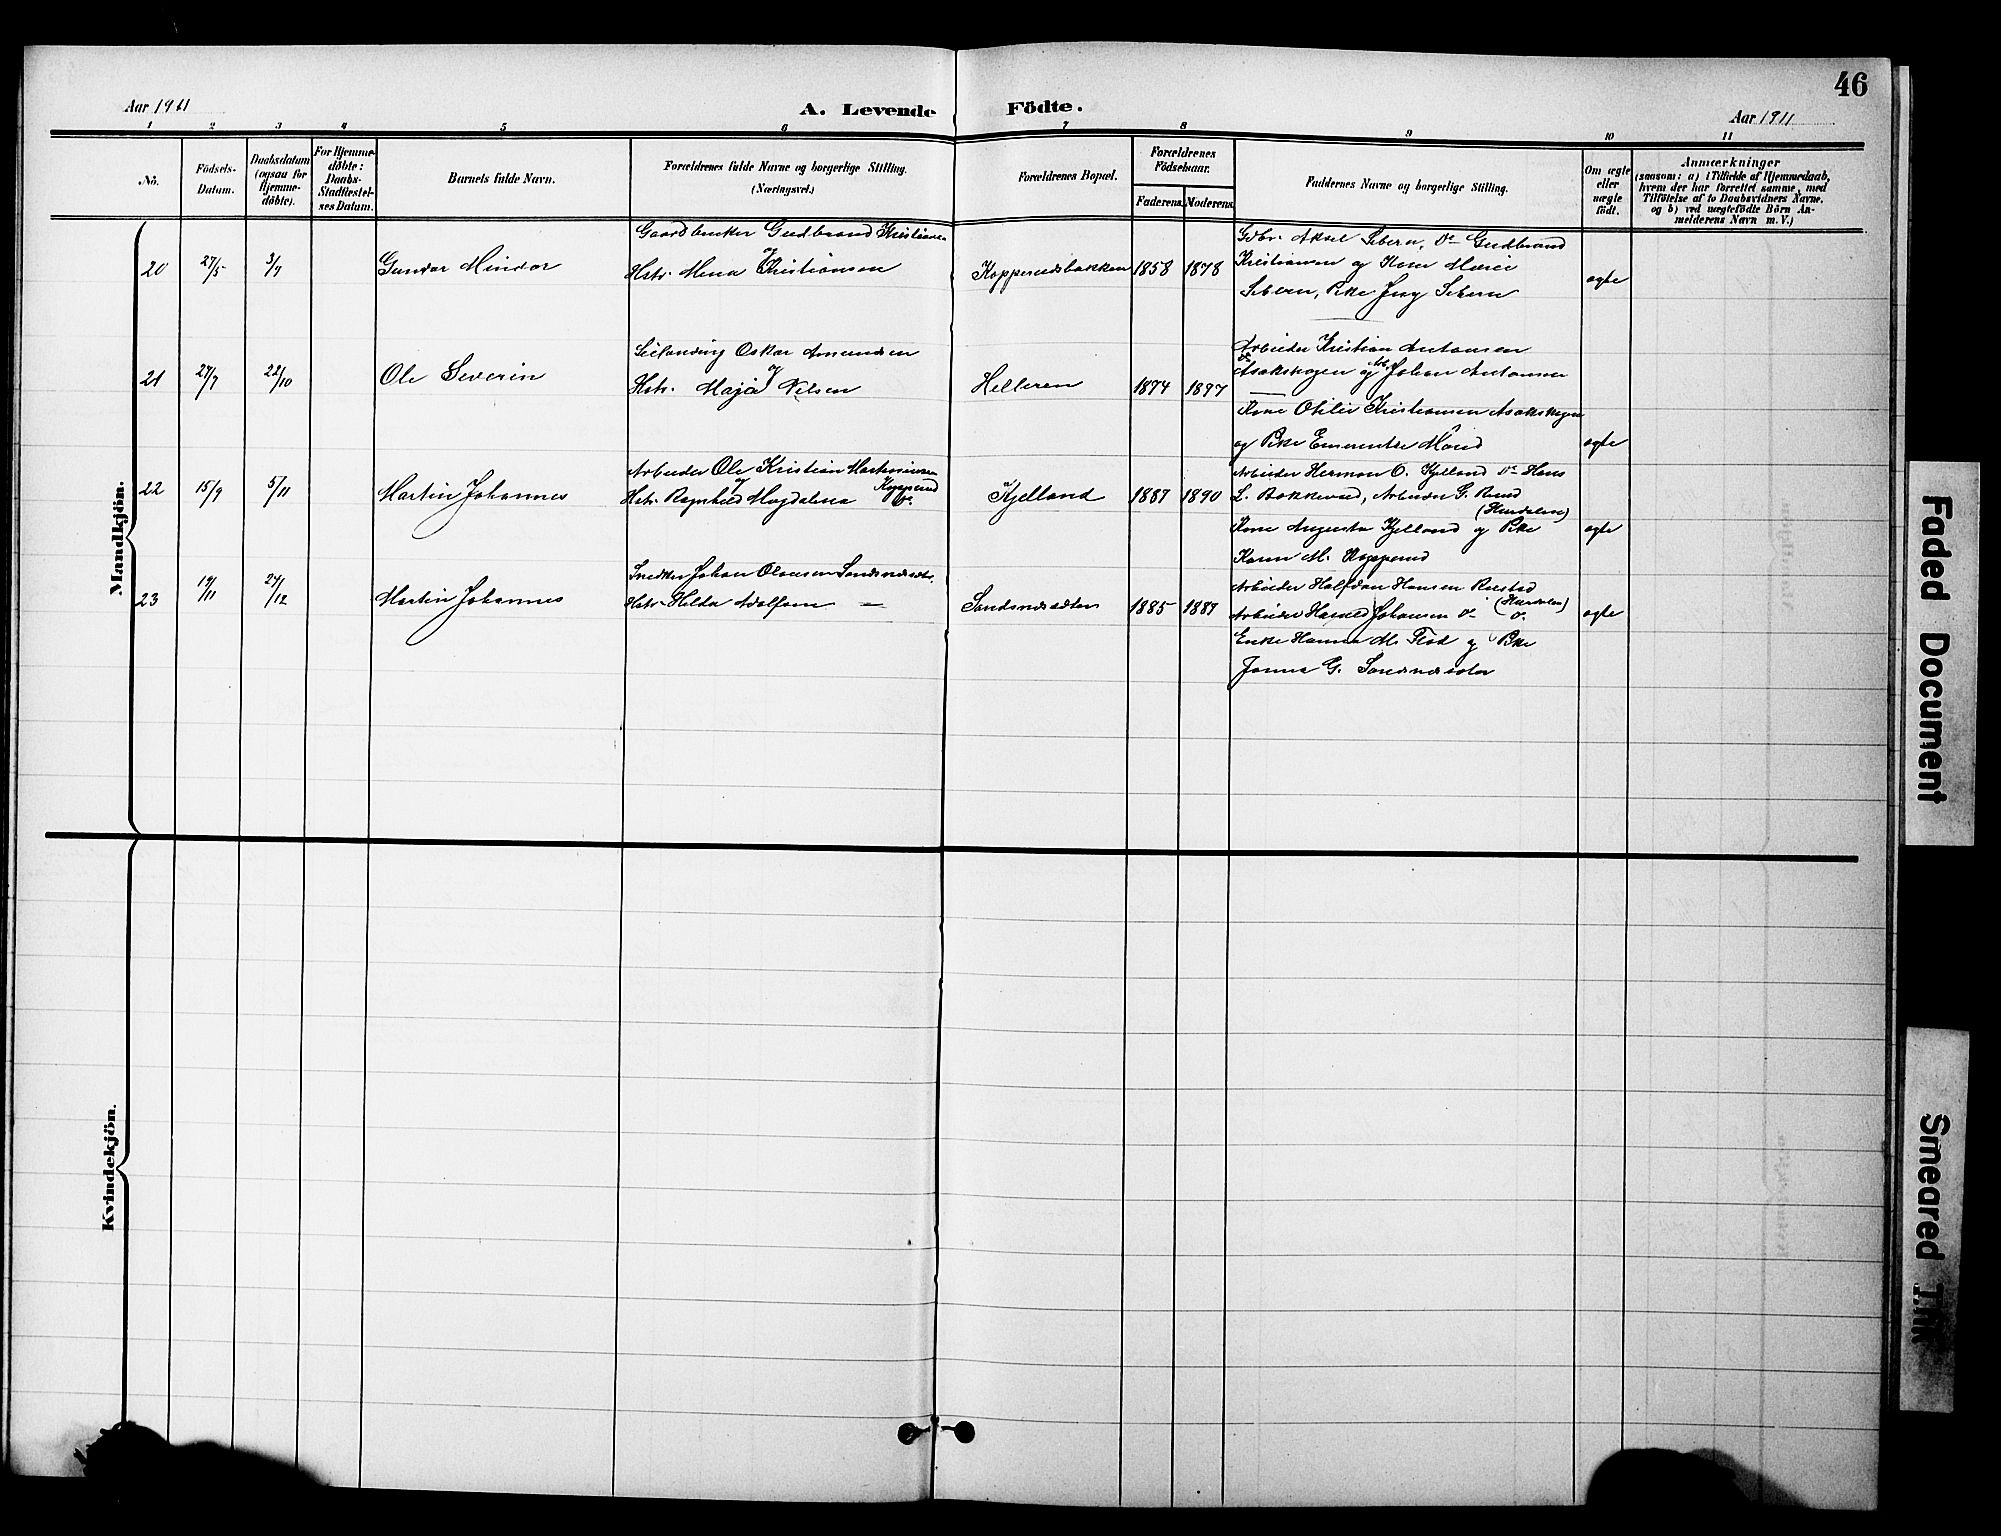 46
Aar 1911
A. Levende Födte.
Aar 1911
1 2 3 4 5 6 7 8 9 10 11
No.
Födsels-Datum.
Daabsdatum (ogsaa for Hjemme-döbte).
For Hjemme-döbte: Daabs-Stadfæstel-ses Datum.
Barnets fulde Navn.
Forældrenes fulde Navne og borgerlige Stilling.
(Næringsvei.)
Forældrenes Bopæl.
Forældrenes Födselsaar.
Faderens. Moderens.
Faddernes Navne og borgerlige Stilling.
Om ægte eller uægte födt.
Anmærkninger
(saasom: a) i Tilfælde af Hjemmedaab,
hvem der har forrettet samme, med
Tilföielse af to Daabsvidners Navne.
og b) ved uægtefödte Börn An-
melderens Navn m. V.)
Mandkjön.
20 27/5 3/7 Gunvor Mindor
Gaardbruker Gudbrand Kristiansen
og
Hstr. Mena Kristiansen
Kopperudsbakken 1858 1878
Gdbr. Aksel Seberu, do Gudbrand
Kristiansen og Kone Marie
Seberu, Pike Jeny Seberu
ægte
21 27/7 22/10 Ole Severin
Oskar Amundsen
og
Hstr. Maja Nelsen
Helleren 1874 1897
Arbeider Kristian Antonsen
Asakskogen og Arb. Johan Antonsen
Kone Otilie Kristiansen Asakskogen
og Pike Emerentse
ægte
22 15/9 5/11 Martin Johannes
Arbeider Ole Kristian Martinsen
og
Hstr. Ragnhild Magdalena Kopperud
Kjelland 1887 1890
Arbeider Herman O. Kjelland do Hans
L. Bakkerud, Arbeider G. Ruud
(Hurdalen)
Kone Augusta Kjelland og Pike
Karen M. Kopperud
ægte
23 19/11 24/12 Martin Johannes
Snedker Johan Olausen Sandsnæsæter
Hstr. Hilda Adolfsen —
Sandsnæsæter 1885 1887
Arbeider Halfdan Hansen Rustad
(Hurdalen)
Arbeider Harald Johansen do do
Enke Hanna M. Flod og Pike
Janna G. Sandsnæsæter
ægte
Kvindekjön.
Faded Document
Smeared Ink